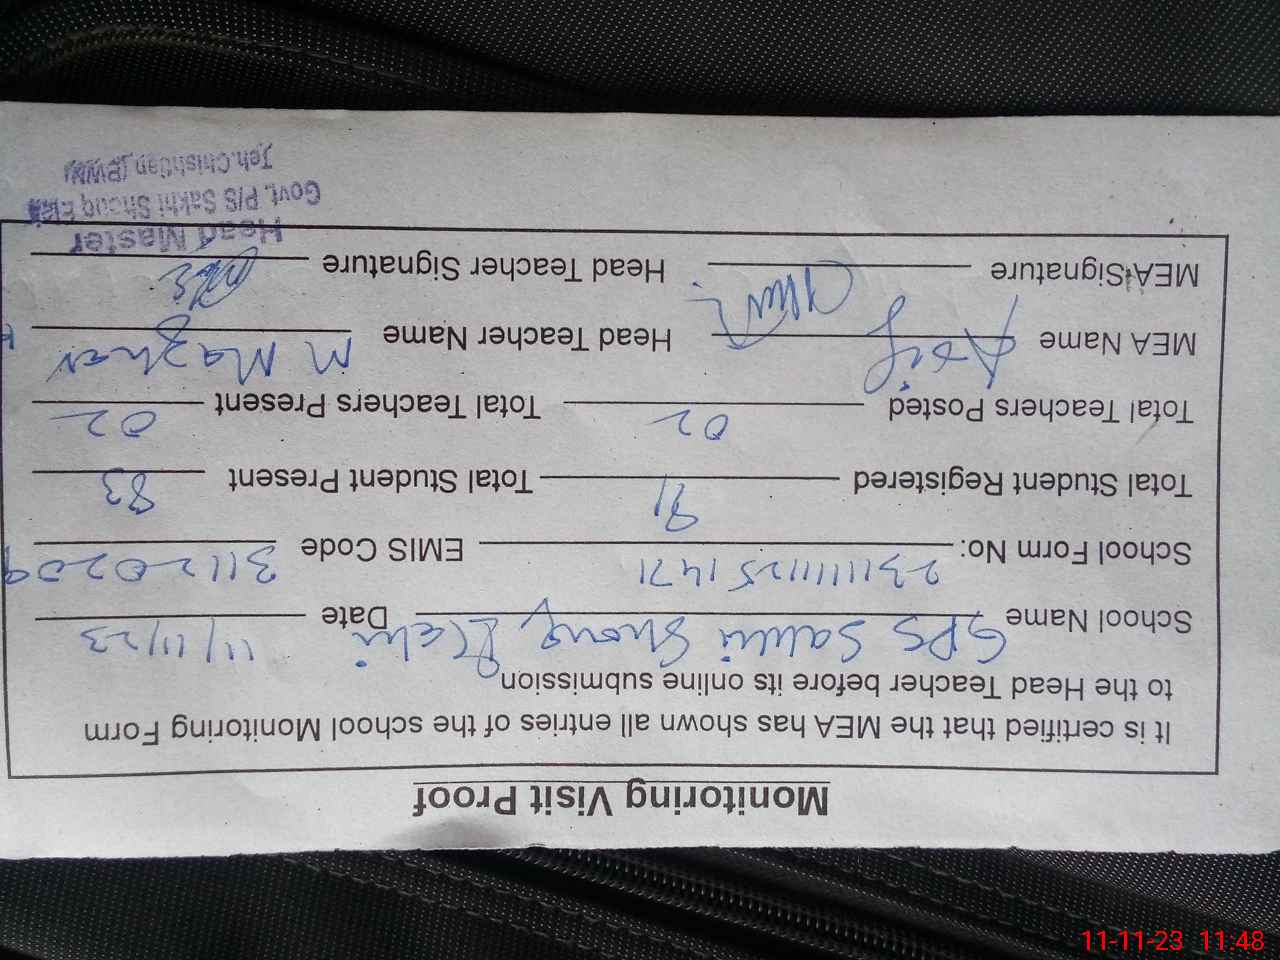 Monitoring Visit Proof
It is certified that the MEA has shown all entries of the school Monitoring Form
to the Head Teacher before its online submission
School Name GPS Sakhi Shouq Elahi Date 11/11/23
School Form No: EMIS Code 31120209
Total Student Registered 91 Total Student Present 83
Total Teachers Posted 02 Total Teachers Present 02
MEA Name Asif Head Teacher Name M Mazhar
MEA Signature Head Teacher Signature
Head Master
Govt. P/S Sakhi Shouq Elahi
Teh.Chishtian (BWN)
11-11-23 11:48